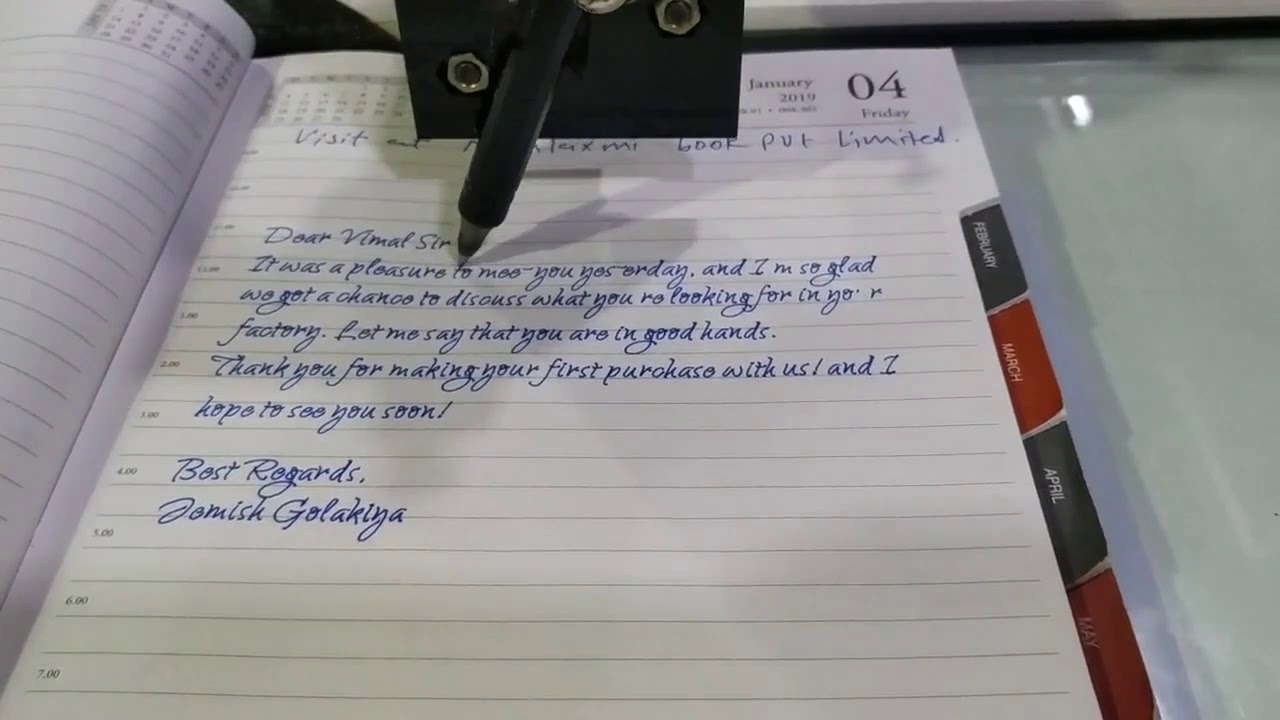 January
2019
04
Friday
Visit at book pvt Limited.
Dear Vimal Sir
It was a pleasure to mee you yes erday, and I m so glad
we got a chance to discuss what you re looking for in yo r
factory. Let me say that you are in good hands.
Thank you for making your first purchase with us! and I
hope to see you soon!
Best Regards,
Jemish Golakiya
1.00
2.00
3.00
4.00
5.00
6.00
7.00
FEBRUARY
MARCH
APRIL
MAY